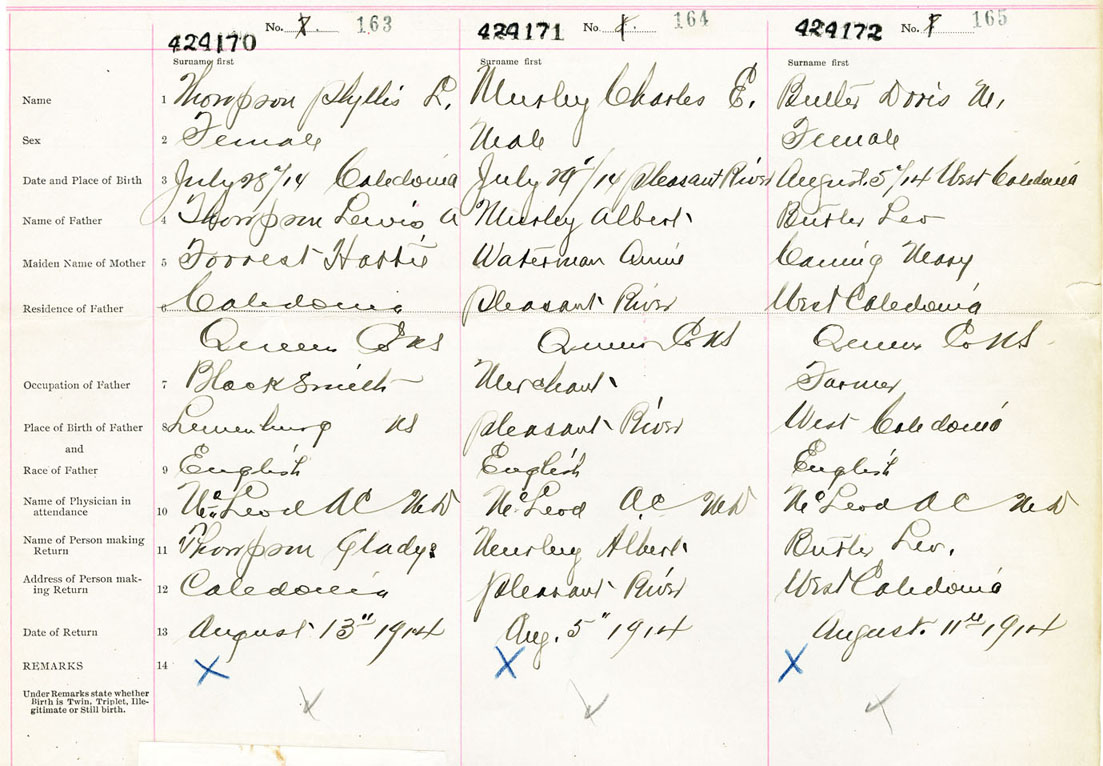 424170 No. 7. 163 424171 No. 164 424172 No. 165
Surname first Surname first Surname first
Name 1 Thompson Phyllis L. Charles E. Butler Doris M.
Sex 2 Female Male Female
Date and Place of Birth 3 July 28"/14 Caledonia July 29"/14 Pleasant River August 5"/14 West Caledonia
Name of Father 4 Thompson Lewis A Albert Butler Leo
Maiden Name of Mother 5 Forrest Hattie Waterman Annie Mary
Residence of Father 6 Caledonia Pleasant River West Caledonia
Queens Co NS Queens Co NS Queens Co NS
Occupation of Father 7 Blacksmith Merchant Farmer
Place of Birth of Father 8 Lunenburg NS Pleasant River West Caledonia
and
Race of Father 9 English English English
Name of Physician in
attendance 10 McLeod AC MD McLeod A.C. MD McLeod AC MD
Name of Person making
Return 11 Thompson Gladys Albert Butler Leo.
Address of Person mak-
ing Return 12 Caledonia Pleasant River West Caledonia
Date of Return 13 August 13" 1914 Aug. 5" 1914 August. 11th 1914
REMARKS 14 X X X
Under Remarks state whether
Birth is Twin, Triplet, Ille-
gitimate or Still birth.